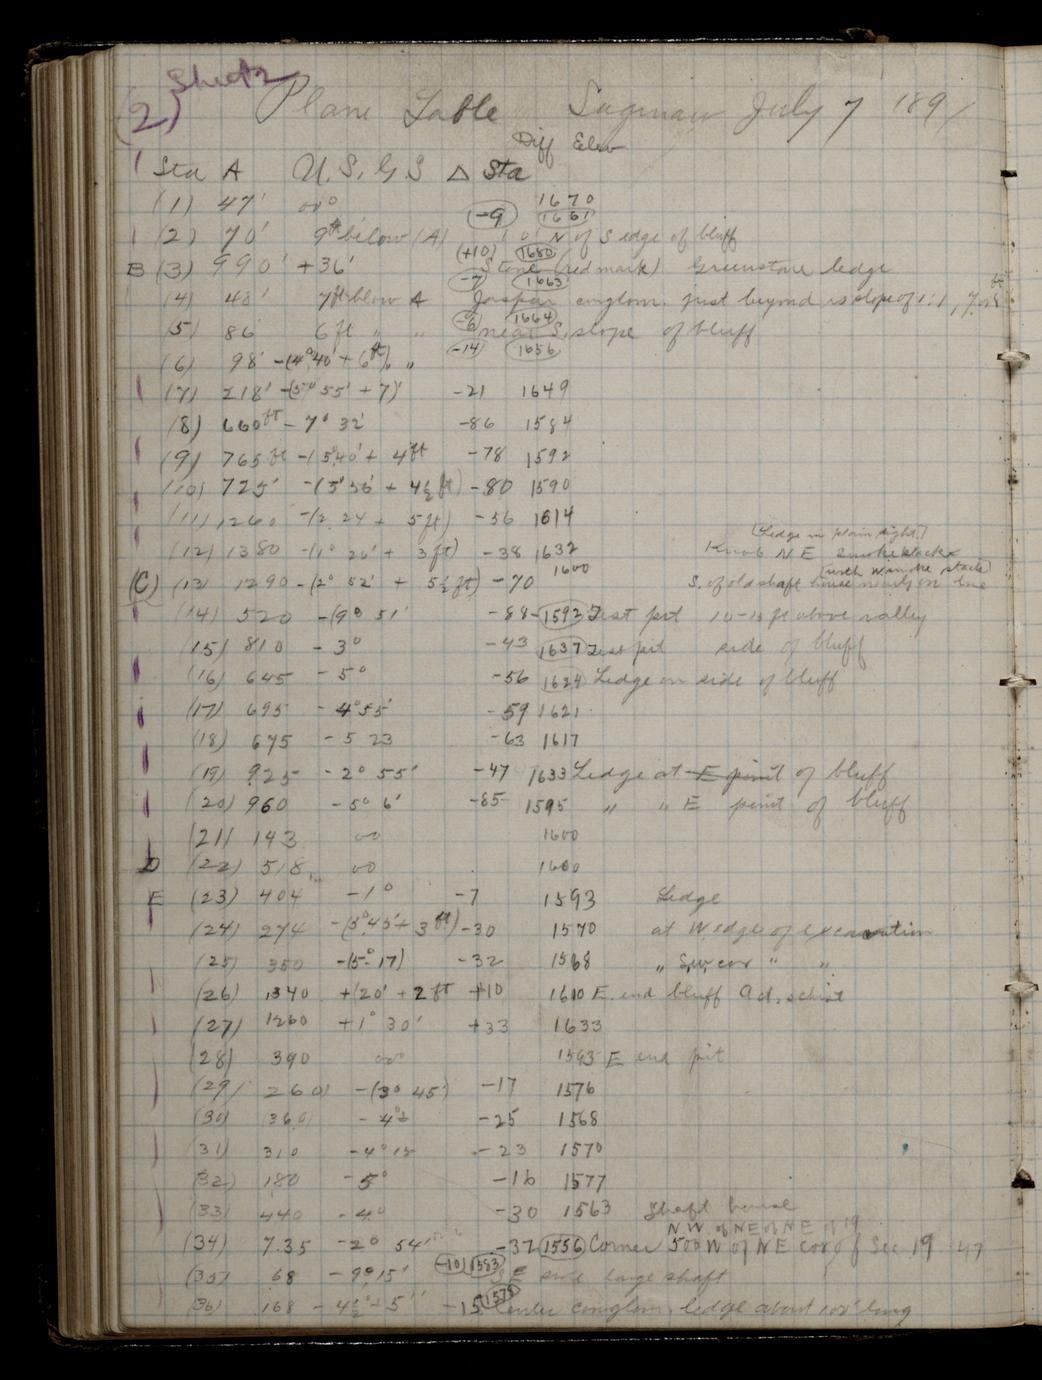 Sheet 2
(2) Plane Table Saginaw July 7 1891
Diff Elev
Sta A U.S.G.S △ Sta
(1) 47' 00° 1670
(2) 70' 9ft below (A) (-9) 1661 N of S edge of bluff
B (3) 990' +36' (+10) 1680 Stone (red mark) Greenstone ledge
(4) 48' 7ft blow A (-7) 1663 Jaspar conglom. just beyond is slope of 1:1,
(5) 86 6 ft " " (-6) 1664 near S. slope of bluff
(6) 98' -(4°40' + 6ft) " (-14) 1656
(7) 218' -(5° 55' + 7)' -21 1649
(8) 660ft - 7° 32' -86 1584
(9) 765ft -(5°40' + 4ft -78 1592
(10) 725' -(5°56' + 4½ ft) -80 1590
(11) 1260 -(2.24 + 5ft) -56 1614
(Ledge in plain sight.)
(12) 1380 -(1° 26' + 3 ft) -38 1632 Knob N E smokestack
(C) (13) 1290 -(2° 52' + 5½ ft) -70 1600 S. of old shaft house nearly on line
(with smoke stack)
(14) 520 -(9° 51' -88 1592 Test pit 10-15 ft above valley
(15) 810 - 3° -43 1637 Test pit side of bluff
(16) 645 - 5° -56 1624 Ledge on side of bluff
(17) 695 - 4°55' -59 1621
(18) 675 - 5 23 -63 1617
(19) 925 - 2° 55' -47 1633 Ledge at E point of bluff
(20) 960 - 5° 6' -85 1595 " " E point of bluff
(21) 143 00 1600
D (22) 518 00 1600
E (23) 404 -1° -7 1593 Ledge
(24) 274 -(5°45' + 3 ft) -30 1570 at W. edge of excavation
(25) 350 -(5° 17) -32 1568 " S.W. cor " "
(26) 1340 +(20' + 2 ft +10 1610 E. end bluff Qd. schist
(27) 1260 +1° 30' +33 1633
(28) 390 00° 1593 E end pit
(29) 260 -(3° 45') -17 1576
(30) 360 - 4° -25 1568
(31) 310 -4° 15 -23 1570
(32) 180 -5° -16 1577
(33) 440 -4° -30 1563 Shaft house
N.W. of NE of NE of 19
(34) 7.35 -2° 54' -37 1556 Corner 500 W of NE cor of Sec 19 47
(35) 68 -9°15' (-10) 1583 S E side large shaft
(36) 168 - 4½° + 5" -15 Center conglom. ledge about 100' long